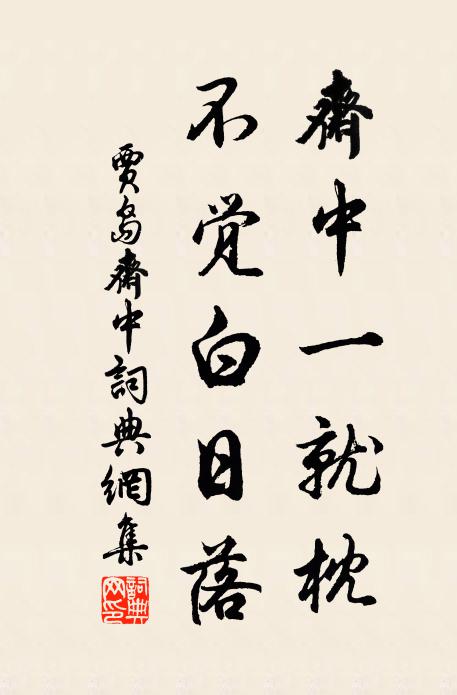 齋中一就枕
不覺白日落
賈島齋中詞典網集
詞典網印